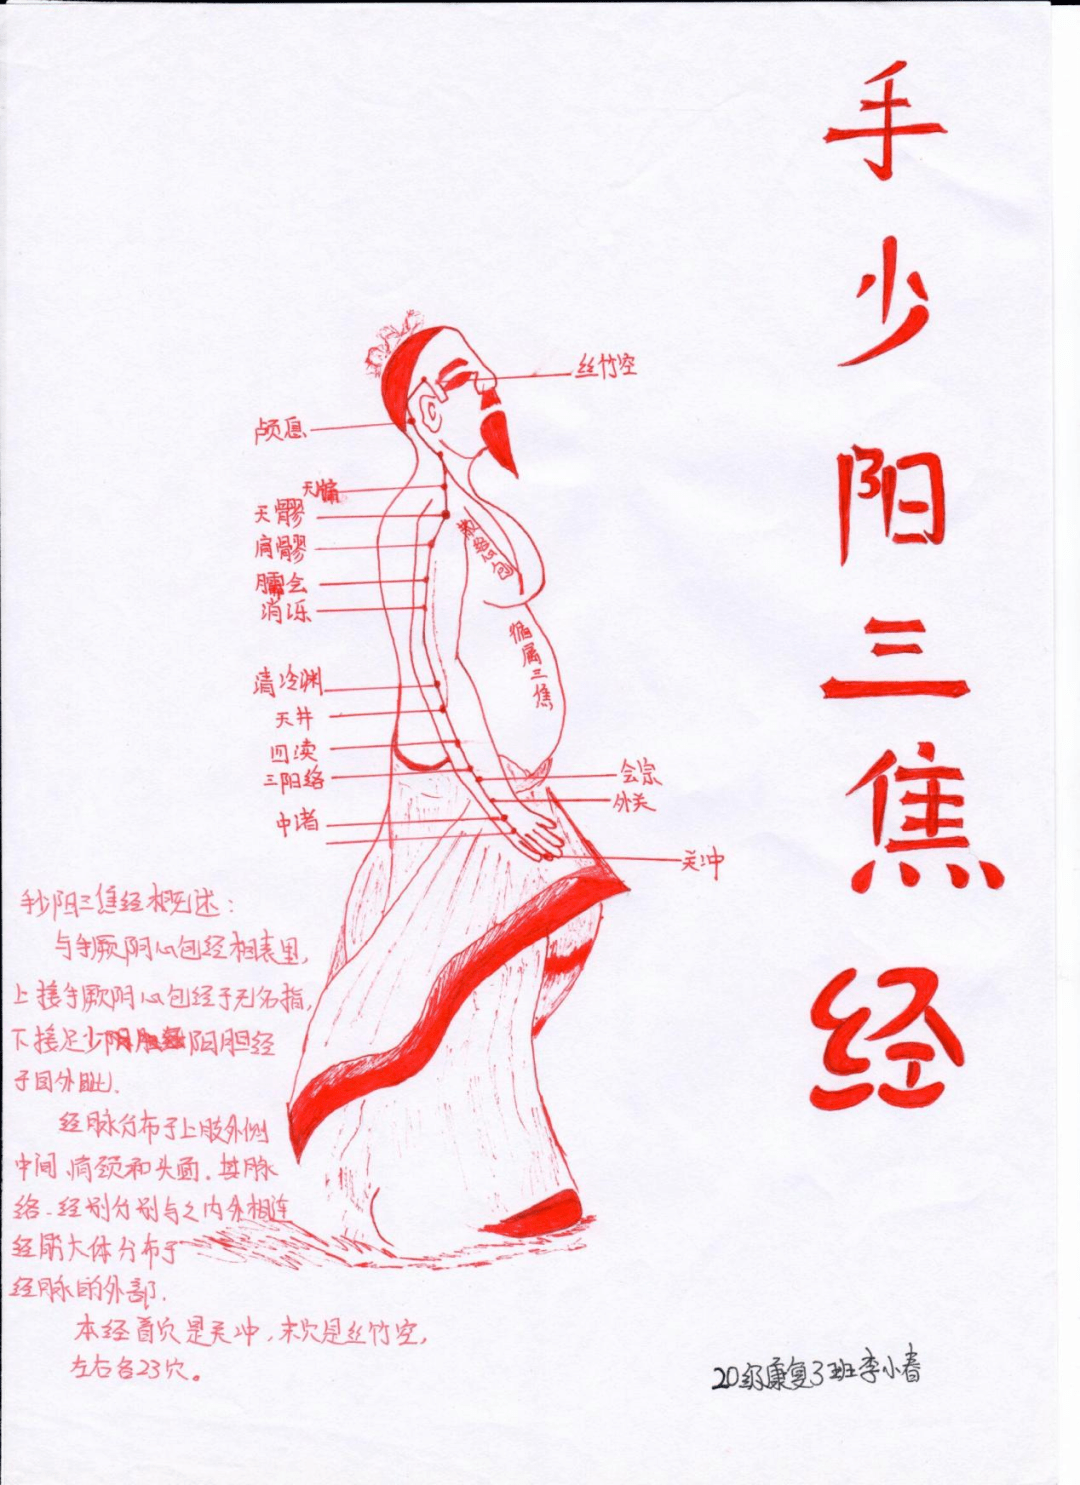 手少阳三焦经
丝竹空
颅息
天牖
天髎
肩髎
臑会
消泺
散络心包
循属三焦
清冷渊
天井
四渎
三阳络
会宗
外关
中渚
关冲
手少阳三焦经概述:
与手厥阴心包经相表里,
上接手厥阴心包经于无名指,
下接足少阳胆经
于目外眦.
经脉分布于上肢外侧
中间、肩颈和头面.其脉
络.经别分别与之内外相连
经筋大体分布于
经脉的外部.
本经首穴是关冲,末穴是丝竹空,
左右各23穴。
20级康复3班李小春